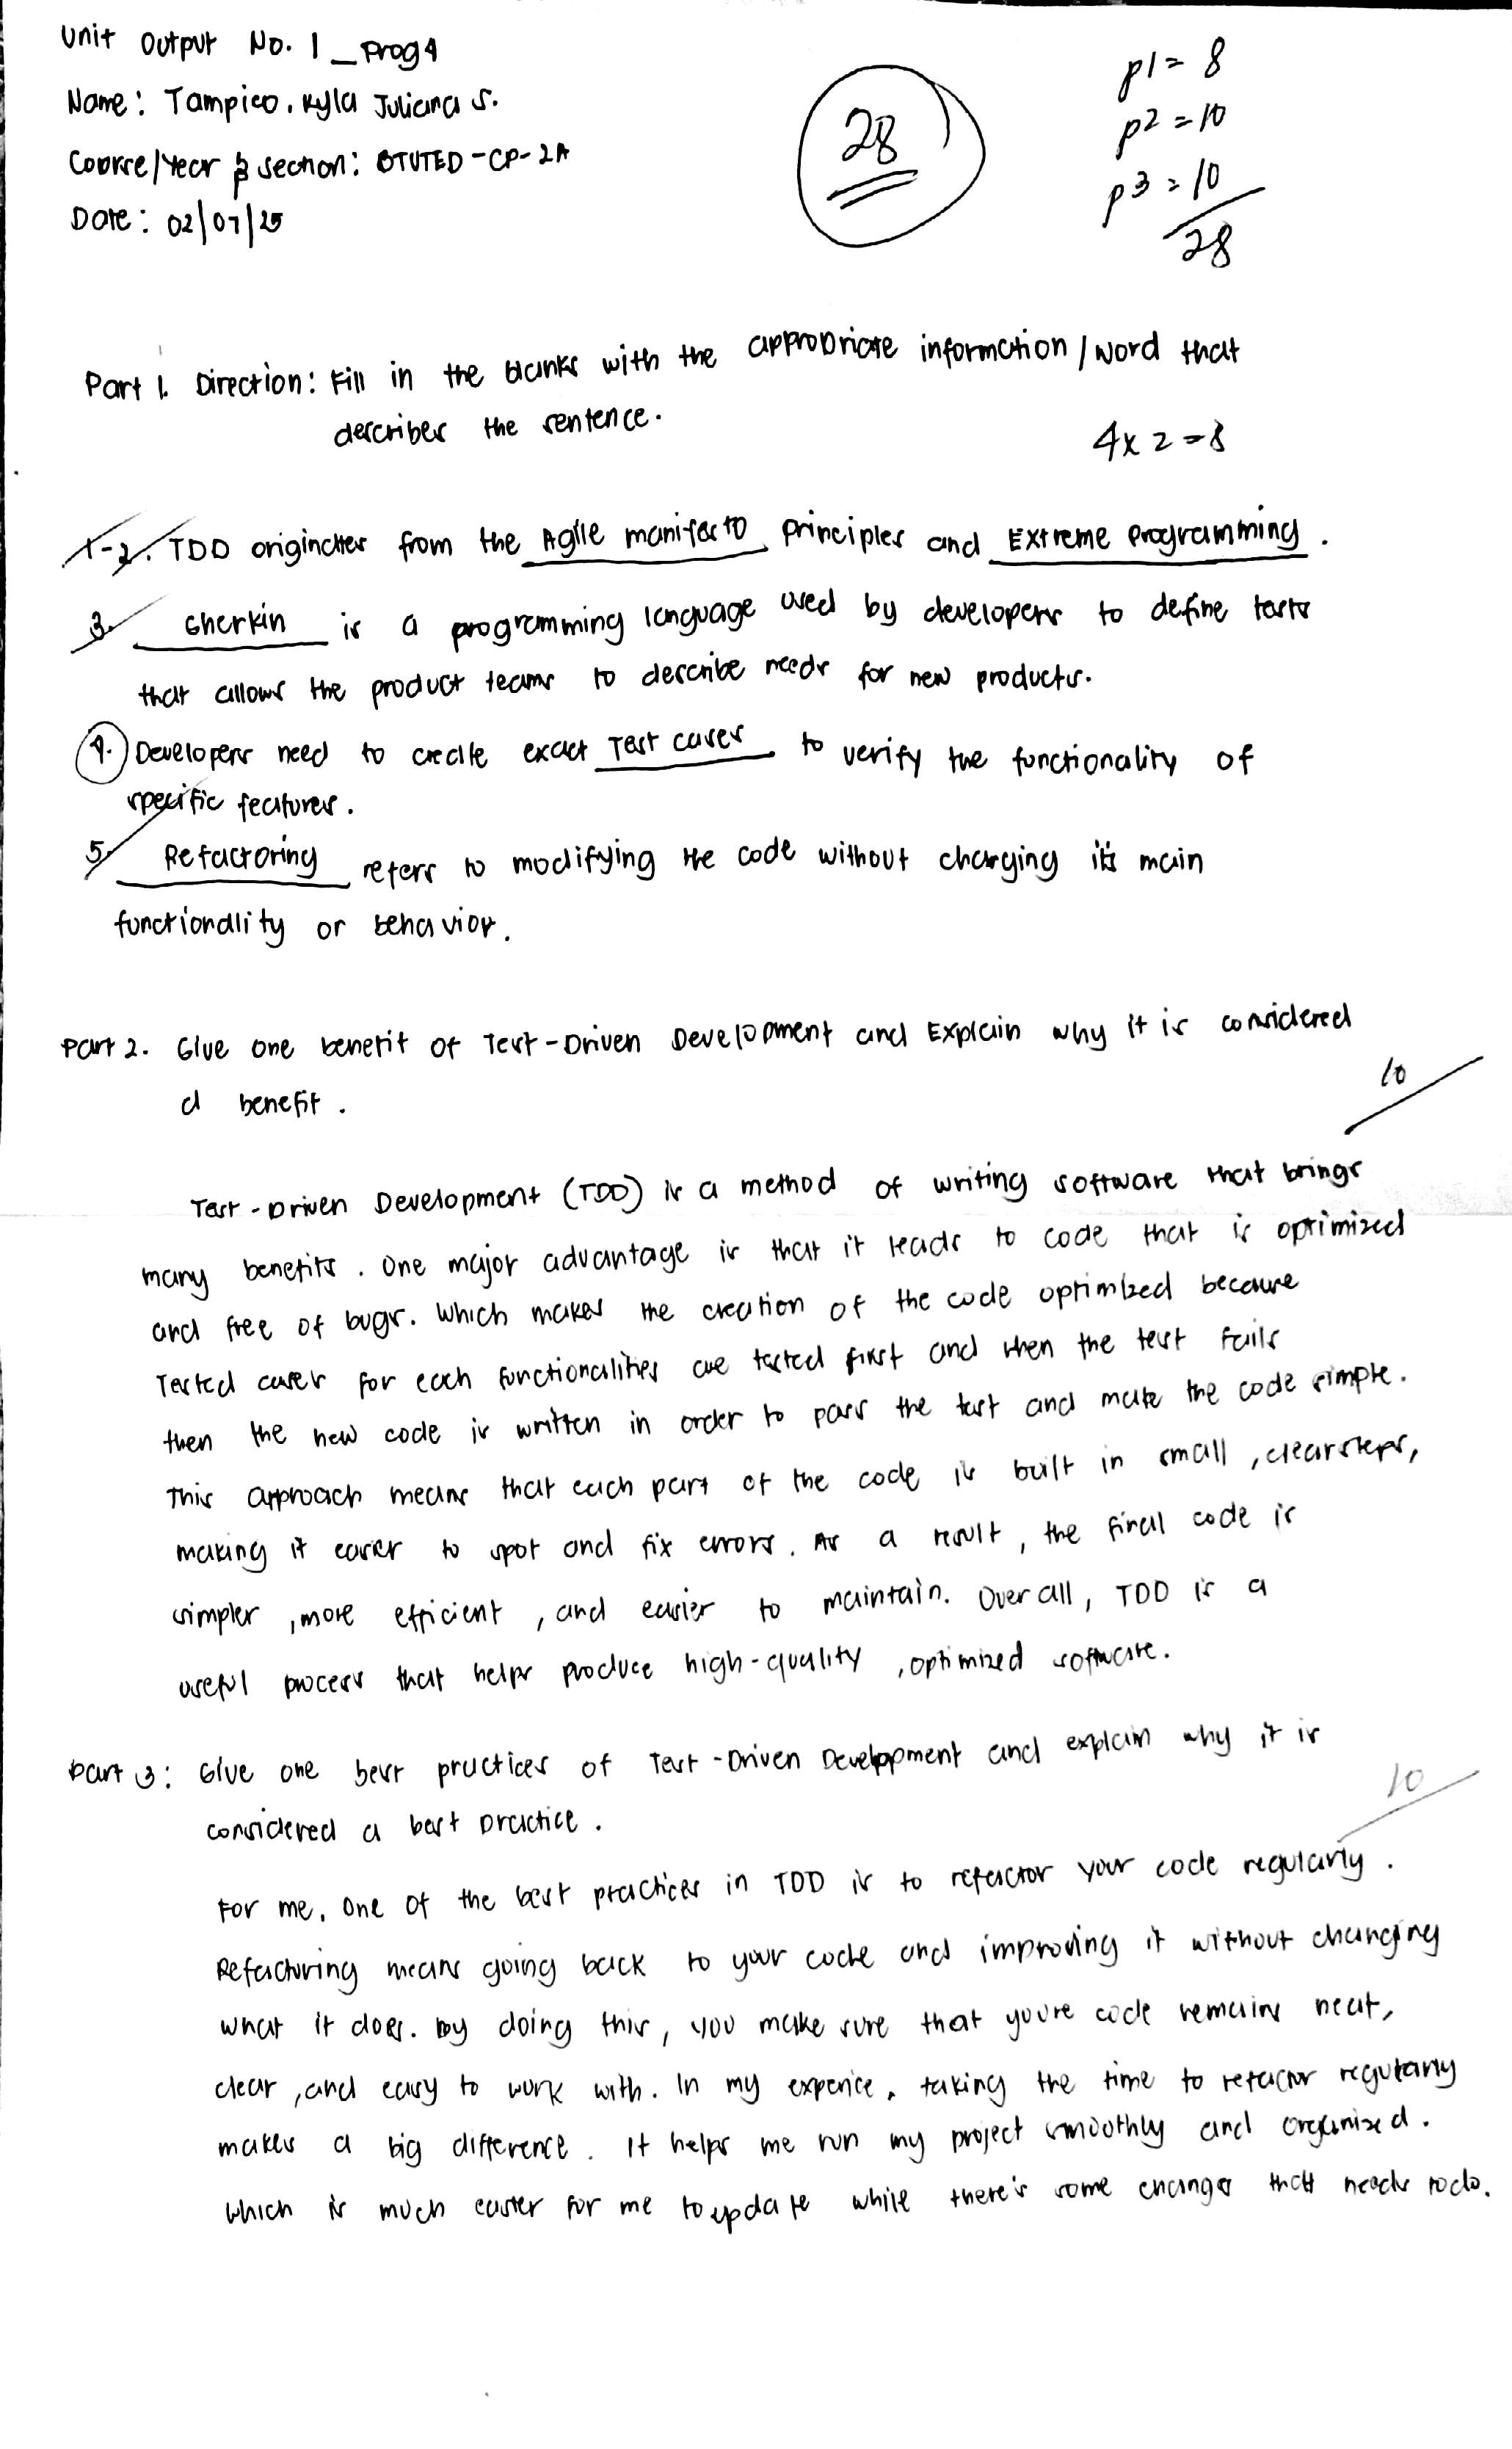 Unit Output No. 1_Prog4
Name: Tampico, Kyla Juliana S.
Course/Year & Section: BTVTED-CP-2A
Date: 02/07/25
28
p1= 8
p2 = 10
p3 = 10
28
Part 1. Direction: Fill in the blanks with the appropriate information / word that
describes the sentence.
4x2=8
1-2. TDD originates from the Agile manifesto principles and Extreme Programming.
3. Gherkin is a programming language used by developers to define tests
that allows the product teams to describe needs for new products.
4. Developers need to create exact Test cases to verify the functionality of
specific features.
5. Refactoring refers to modifying the code without changing its main
functionality or behavior.
Part 2. Give one benefit of Test-Driven Development and Explain why it is considered
a benefit.
10
Test-Driven Development (TDD) is a method of writing software that brings
many benefits. One major advantage is that it leads to code that is optimized
and free of bugs. Which makes the creation of the code optimized because
Tested cases for each functionalities are tested first and when the test fails
then the new code is written in order to pass the test and make the code simple.
This approach means that each part of the code is built in small, clear steps,
making it easier to spot and fix errors. As a result, the final code is
simpler, more efficient, and easier to maintain. Over all, TDD is a
useful process that helps produce high-quality, optimized software.
Part 3: Give one best practices of Test-Driven Development and explain why it is
considered a best practice.
10
For me, one of the best practices in TDD is to refactor your code regularly.
Refactoring means going back to your code and improving it without changing
what it does. By doing this, you make sure that youre code remains neat,
clear, and easy to work with. In my experice, taking the time to refactor regularly
makes a big difference. It helps me run my project smoothly and organized.
Which is much easier for me to update while there's some changes that needs to do.